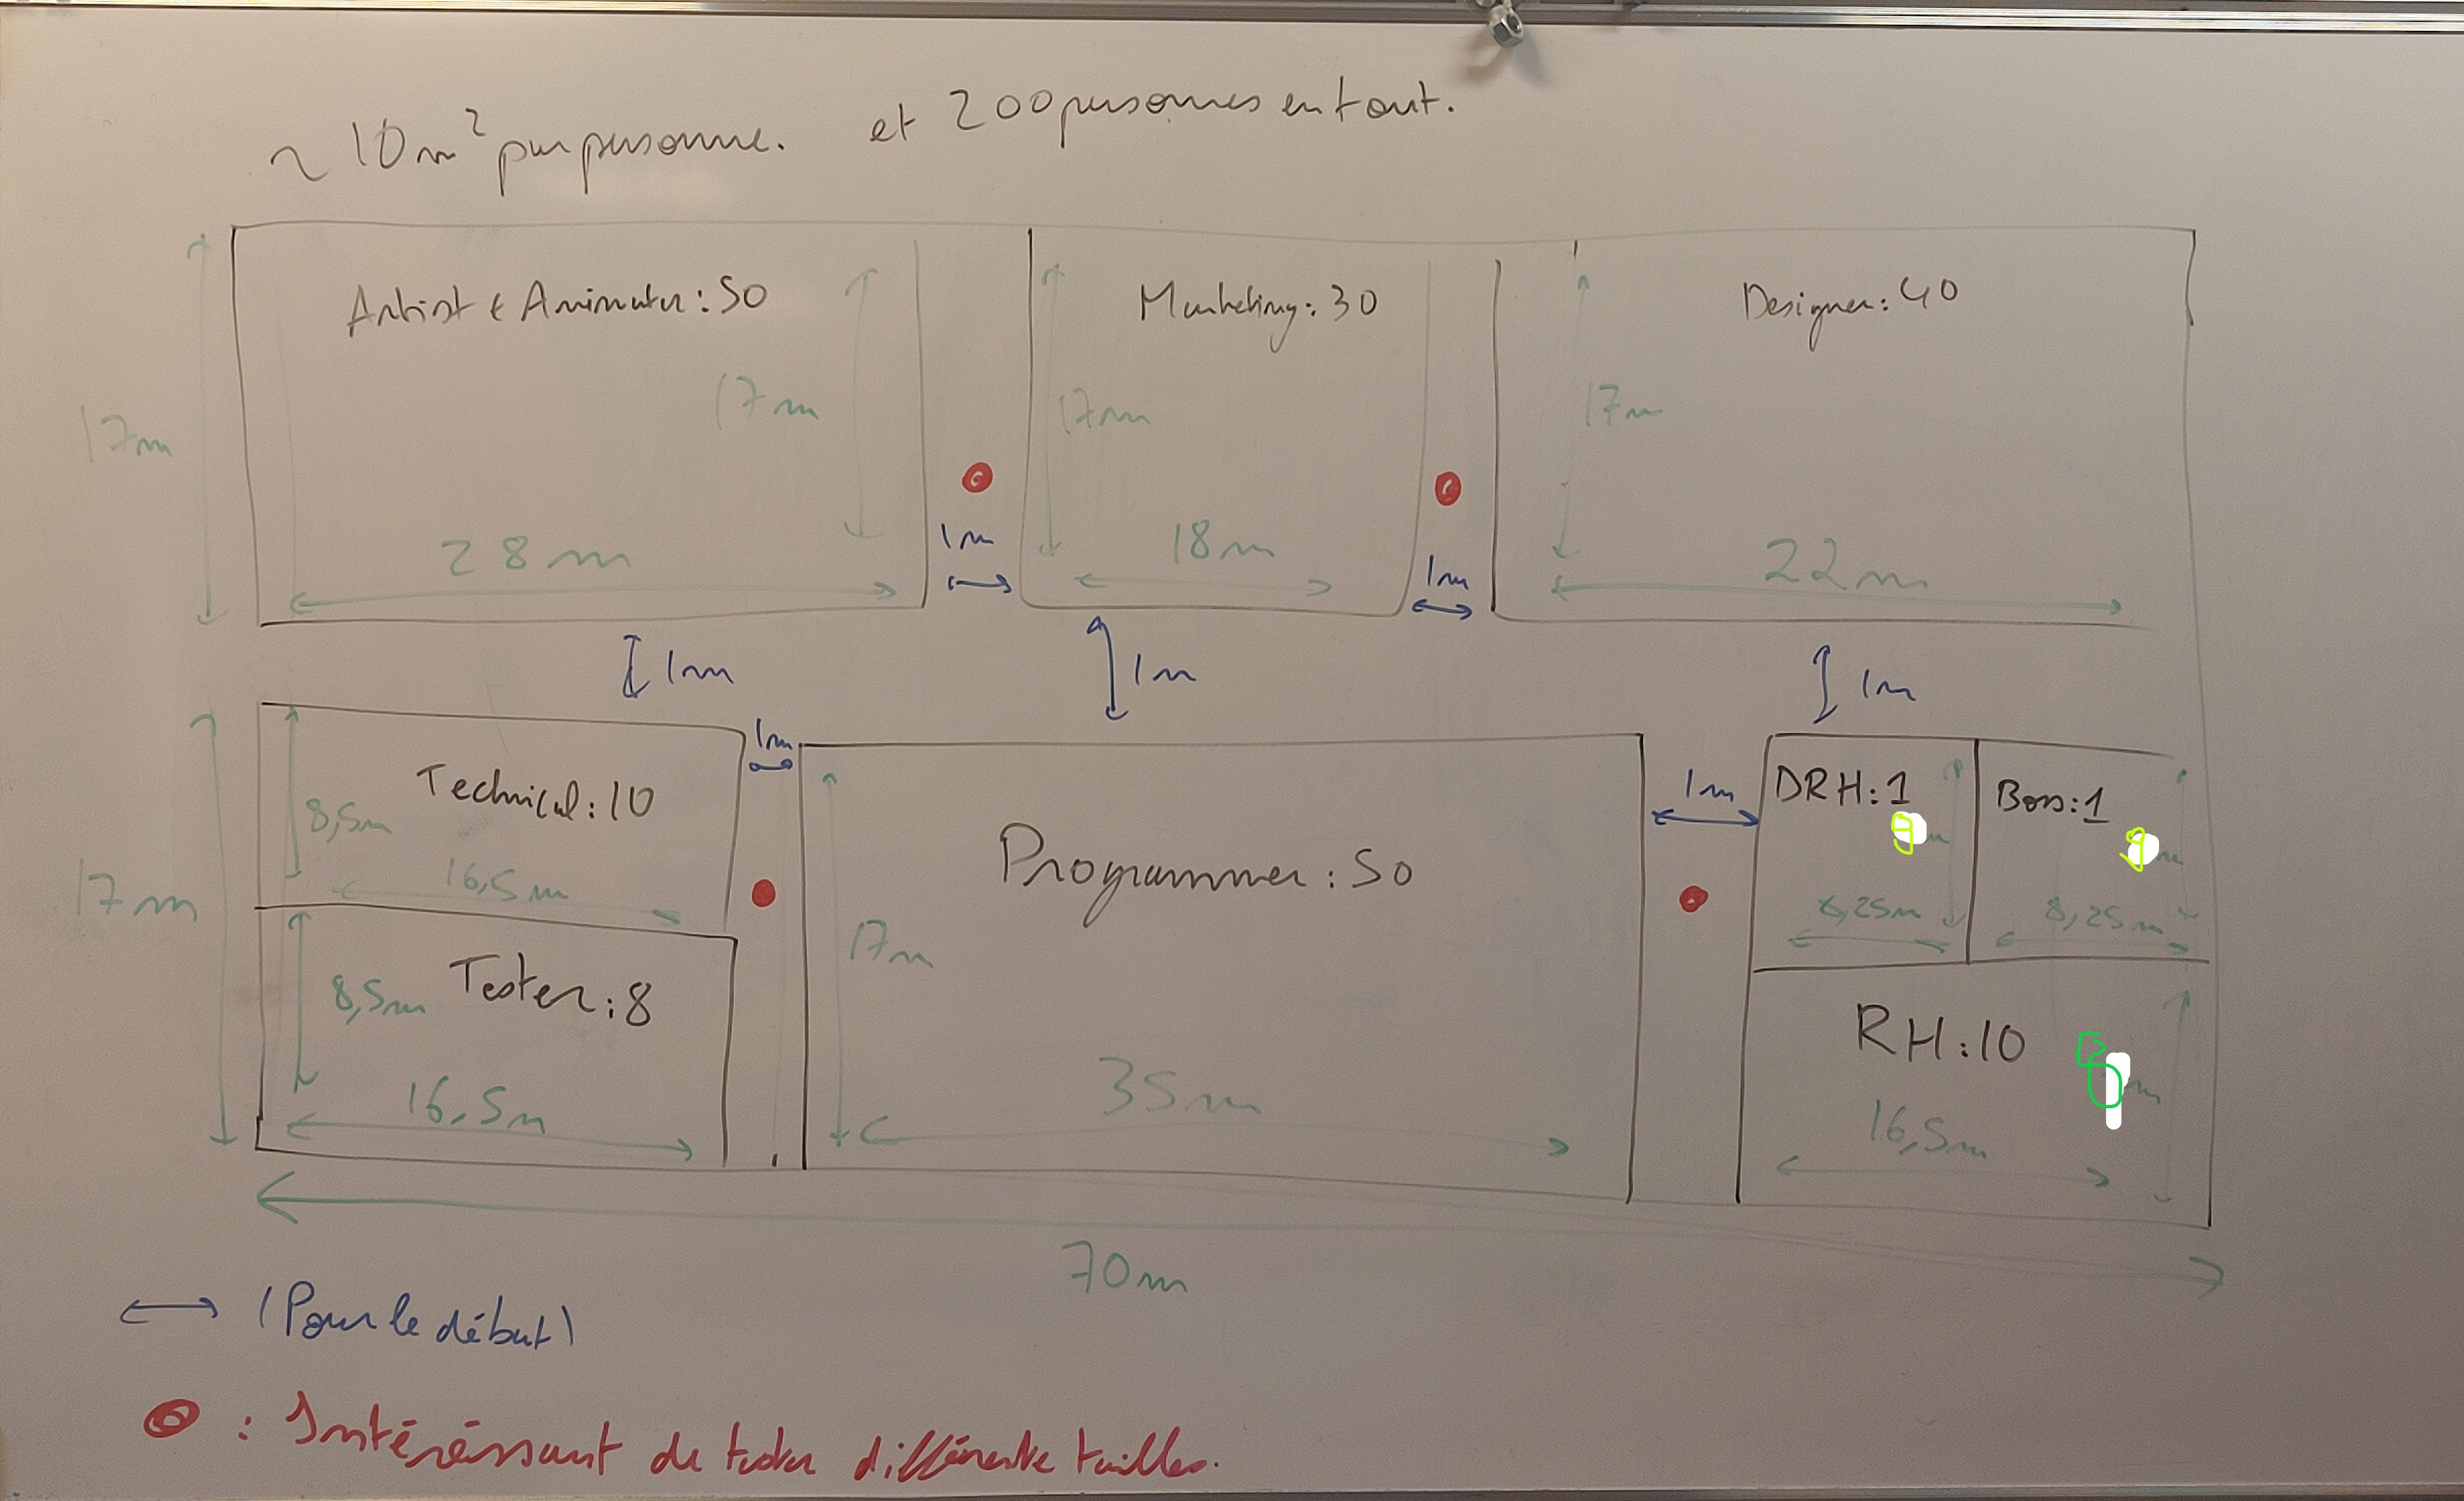 ~ 10m² par personne. et 200 personnes en tout.
Artist & Animator: 50
Marketing: 30
Designer: 40
17m
17m
17m
17m
28m
1m
18m
1m
22m
1m
1m
1m
Technical: 10
1m
8,5m
16,5m
17m
Tester: 8
8,5m
16,5m
Programmer: 50
17m
35m
1m
DRH: 1
9m
8,25m
Boss: 1
9m
8,25m
RH: 10
16,5m
70m
(Pour le début)
: Intéréssant de tester différente tailles.